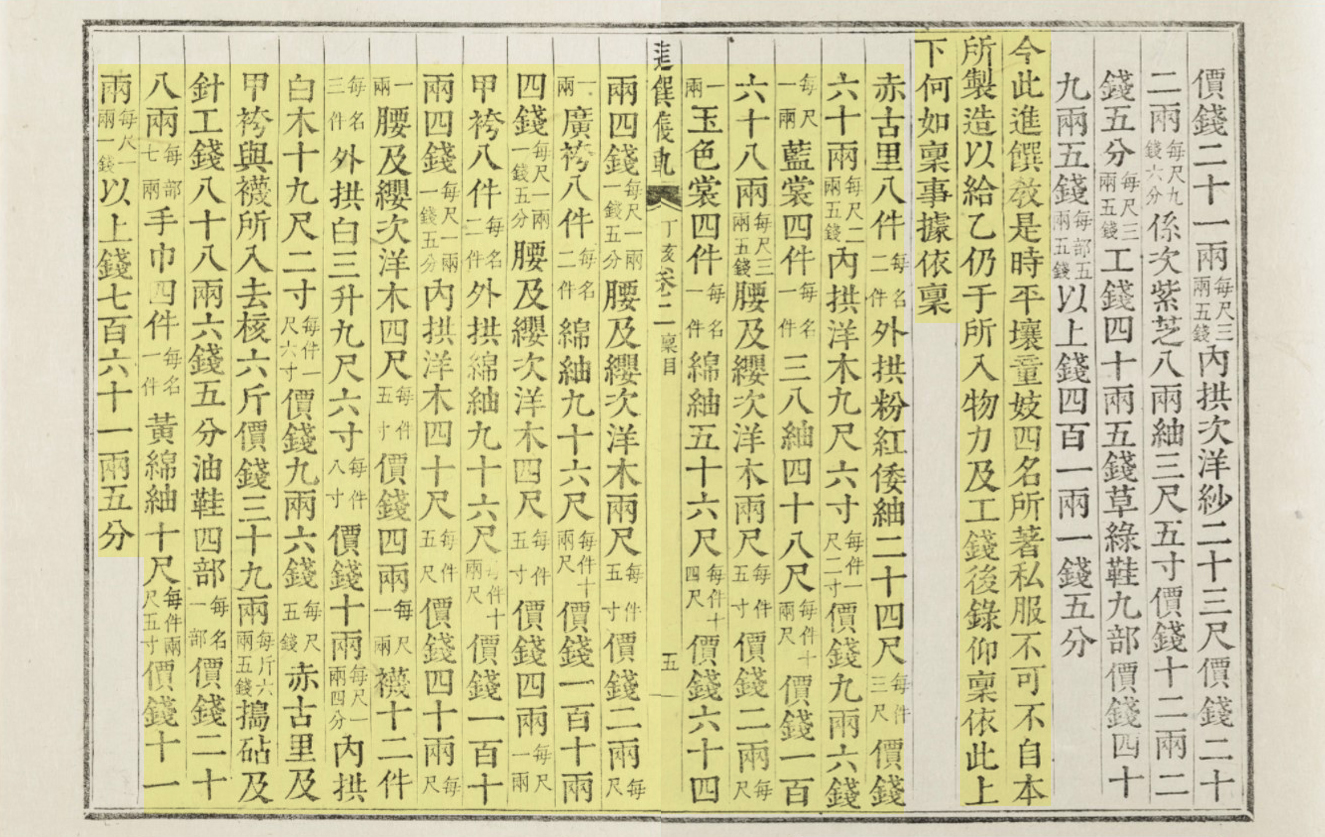 價錢二十一兩每尺三兩五錢內拱次洋紗二十三尺價錢二十
二兩每尺九錢六分係次紫芝八兩紬三尺五寸價錢十二兩二
錢五分每尺三兩五錢工錢四十兩五錢草綠鞋九部價錢四十
九兩五錢每部五兩五錢以上錢四百一兩一錢五分
今此進饌敎是時平壤童妓四名所著私服不可不自本
所製造以給乙仍于所入物力及工錢後錄仰稟依此上
下何如稟事據依稟
赤古里八件每名二件外拱粉紅倭紬二十四尺每件三尺價錢
六十兩每尺二兩五錢內拱洋木九尺六寸每件一尺二寸價錢九兩六錢
每尺一兩藍裳四件每名一件三八紬四十八尺每件十兩尺價錢一百
六十八兩每尺三兩五錢腰及纓次洋木兩尺每件五寸價錢二兩每尺
一兩玉色裳四件每名一件綿紬五十六尺每件十四尺價錢六十四
進饌儀軌 丁亥 卷二 稟目 五
兩四錢每尺一兩一錢五分腰及纓次洋木兩尺每件五寸價錢二兩每尺
一兩廣袴八件每名二件綿紬九十六尺每件十兩尺價錢一百十兩
四錢每尺一兩一錢五分腰及纓次洋木四尺每件五寸價錢四兩每尺一兩
甲袴八件每名二件外拱綿紬九十六尺每件十兩尺價錢一百十
兩四錢每尺一兩一錢五分內拱洋木四十尺每件五尺價錢四十兩每尺
一兩腰及纓次洋木四尺每件五寸價錢四兩每尺一兩襪十二件
每名三件外拱白三升九尺六寸每件八寸價錢十兩每尺一兩四分內拱
白木十九尺二寸每件一尺六寸價錢九兩六錢每尺五錢赤古里及
甲袴與襪所入去核六斤價錢三十九兩每斤六兩五錢搗砧及
針工錢八十八兩六錢五分油鞋四部每名一部價錢二十
八兩每部七兩手巾四件每名一件黃綿紬十尺每件兩尺五寸價錢十一
兩每尺一兩一錢以上錢七百六十一兩五分